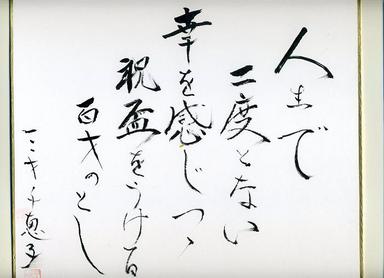 人生で
二度とない
幸を感じつゝ
祝盃をうけ
百才のとし
千恵子